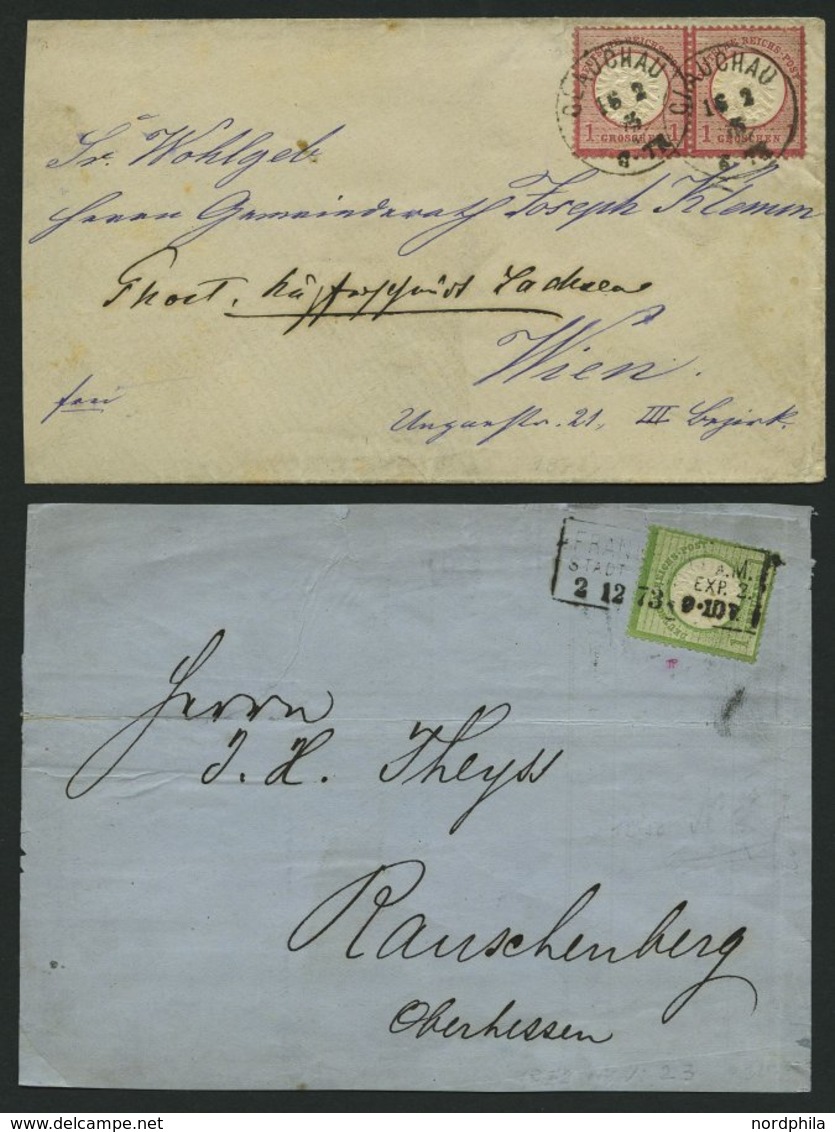 DEUTSCHE REICHS-POST DEUTSCHE REICHS-POST
GLAUCHAU GLAUCHAU
16 2 16 2
1 GROSCHEN 1 1 GROSCHEN
Sr. Wohlgeb.
Herrn Gemeinderath Joseph Klemm
Sachsen
Wien.
frei
Ungarstr. 21, III Bezirk.
FRAN A.M.
STADT EXP. 2.
2 12 73 9-10 V.
Herrn
J. H. Theyss
Rauschenberg
Oberhessen
nordphila